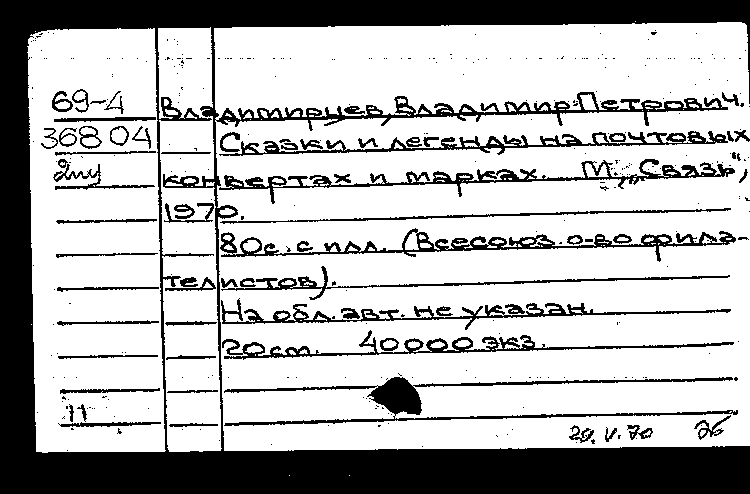 69-4 Владимирцев, Владимир Петрович.
36804 Сказки и легенды на почтовых
конвертах и марках. М., „Связь",
1970.
80с. с илл. (Всесоюз. о-во фила-
телистов).
На обл. авт. не указан.
20 cm. 40000 экз.
11
29.V.70